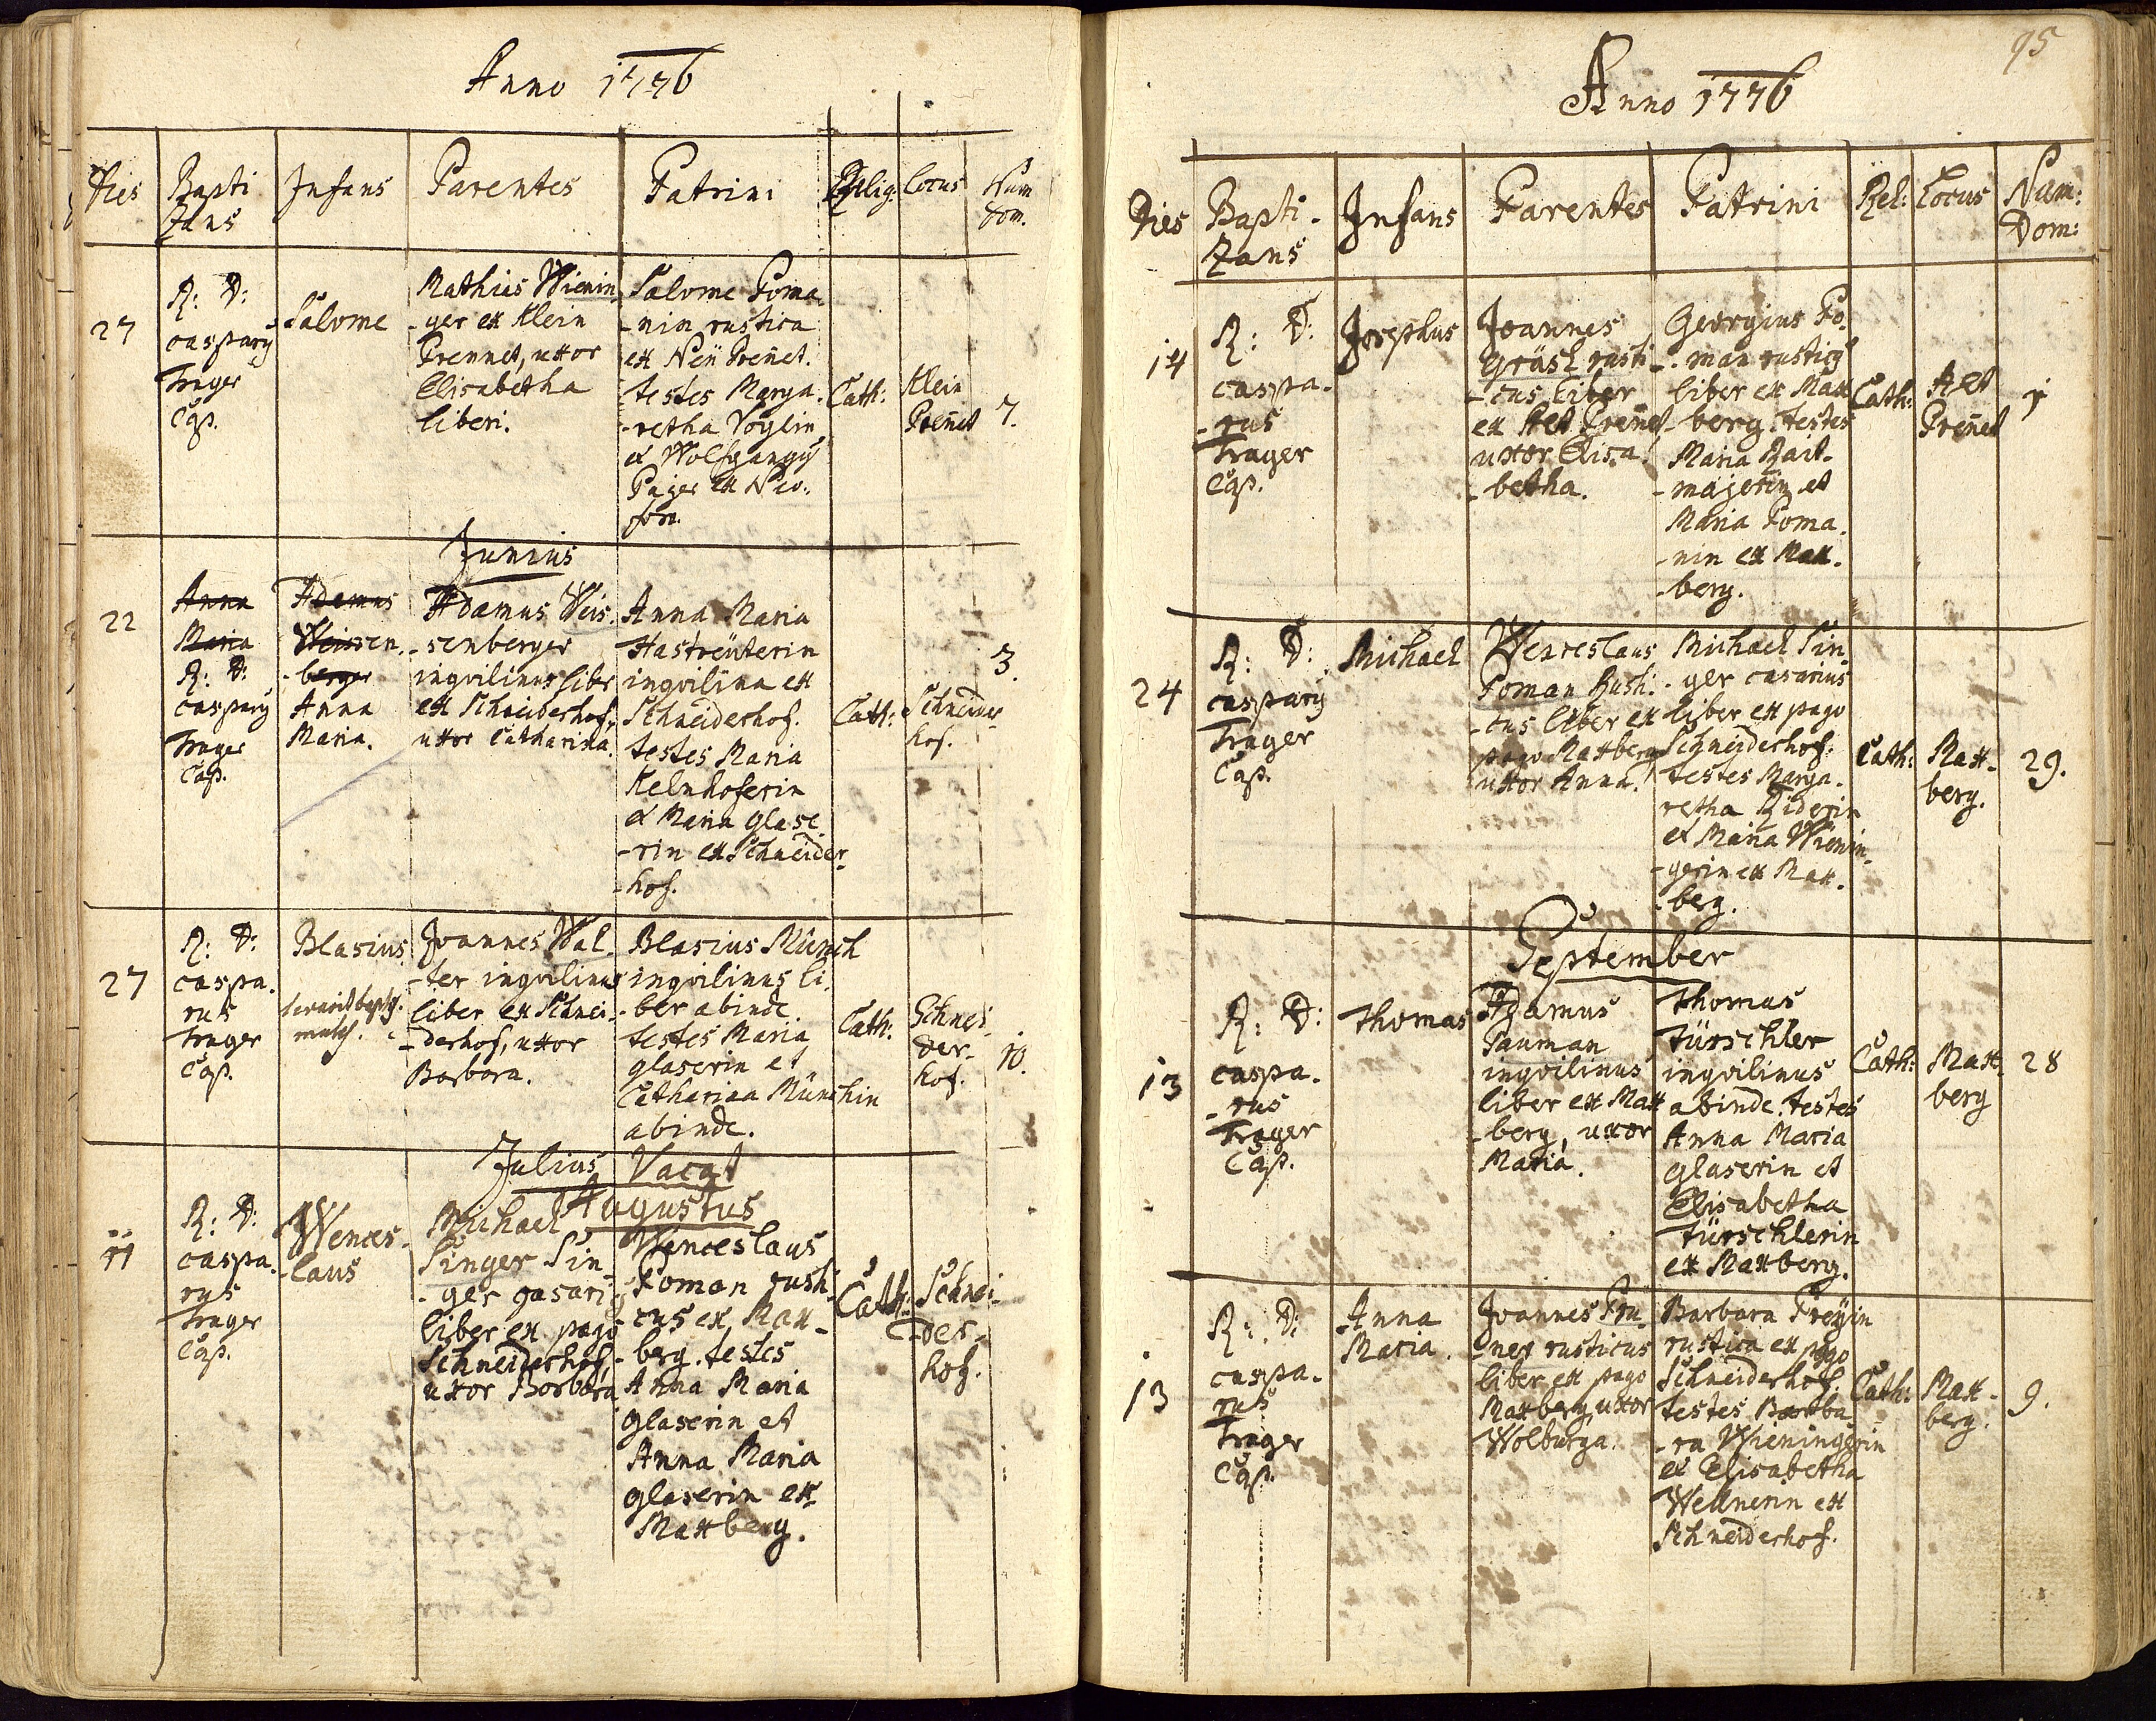 Anno 1776
Dies
Bapti
zans
Infans
Parentes
Patrini
Relig:
Locus
Num
Dom.
27
R: D:
caspary
Trager
Cap.
Salome
Mathias Wienin
-ger ex Klein
Prennet, uxor
Elisabetha
liberi.
Salome Poma
-nin rustica
ex Neü Preñet.
testes Marga-
-retha Voglin
et Wolfgangy
Pajer ex Neo-
foro.
Cath:
Klein
Preñet
7.
Junius
22
Anna
Maria
R: D:
caspary
Trager
Cap.
Adamus
Weissen-
-berger
Anna
Maria.
Adamus Weis-
-senberger
inqvilinus liber
ex Schneiderhof,
uxor Catharina.
Anna Maria
Hastreüterin
inqvilina ex
Schneiderhof.
testes Maria
Kelnhoferin
et Maria Glase
-rin ex Schneider
-hof.
Cath:
Schneider
hof.
3.
27
R: D:
caspa-
rus
Trager
Cap.
Blasius
Joannes Wal-
-ter inqvilinus
liber ex Schnei-
-derhof, uxor
Barbara.
Blasius Münch
inqvilinus li-
-ber abinde.
testes Maria
glaserin et
Catharina Münchin
abinde.
Cath:
Schnei-
der-
hof.
10.
Julius Vacat
Augustus
11
R: D:
caspa-
rus
Trager
Cap.
Wences-
-laus
Michael
Singer Sin
-ger casari
liber ex pago
Schneiderhof,
uxor Barbara
Wenceslaus
Poman rusti
cus ex Max-
-berg. testes
Anna Maria
Glaserin et
Anna Maria
Glaserin ex
Maxberg.
Cath:
Schnei-
der-
hof.
95
Anno 1776
Dies
Bapti-
zans
Infans
Parentes
Patrini
Rel:
Locus
Num:
Dom:
14
R: D:
caspa-
-rus
Trager
Cap.
Josephus
Joannes
Gräsl rusti-
-cus liber
ex Alt Preñet
uxor Elisa-
-betha.
Georgius Po-
-man rusticy
liber ex Max
-berg. testes
Maria Bait-
-majerin et
Maria Poma
-nin ex Max-
-berg.
Cath:
Alt
Preñet
1
24
R: D:
caspary
Trager
Cap.
Michael
Wenceslaus
Poman Rusti-
-cus liber ex
pago Maxberg
uxor Anna.
Michael Sin
-ger casarius
liber ex pago
Schneiderhof.
testes Marga-
retha Riderin
et Maria Wienin-
-gerin ex Max-
-berg.
Cath:
Max-
berg.
29.
September
13
R: D:
caspa-
-rus
Trager
Cap.
Thomas
Adamus
Pauman
inqvilinus
liber ex Max
-berg, uxor
Maria.
Thomas
Türschler
inqvilinus
abinde. testes
Anna Maria
Glaserin et
Elisabetha
Türschlerin
ex Maxberg.
Cath:
Max
berg
28
13
R: D:
caspa-
rus
Trager
Cap.
Anna
Maria.
Joannes Pru-
-ner rusticus
liber ex pago
Maxberg, uxor
Wolburga.
Barbara Preyin
rustica ex pago
Schneiderhof.
testes Barba
-ra Wieningerin
et Elisabetha
Wellnerin ex
Schneiderhof.
Cath:
Max-
berg.
9.